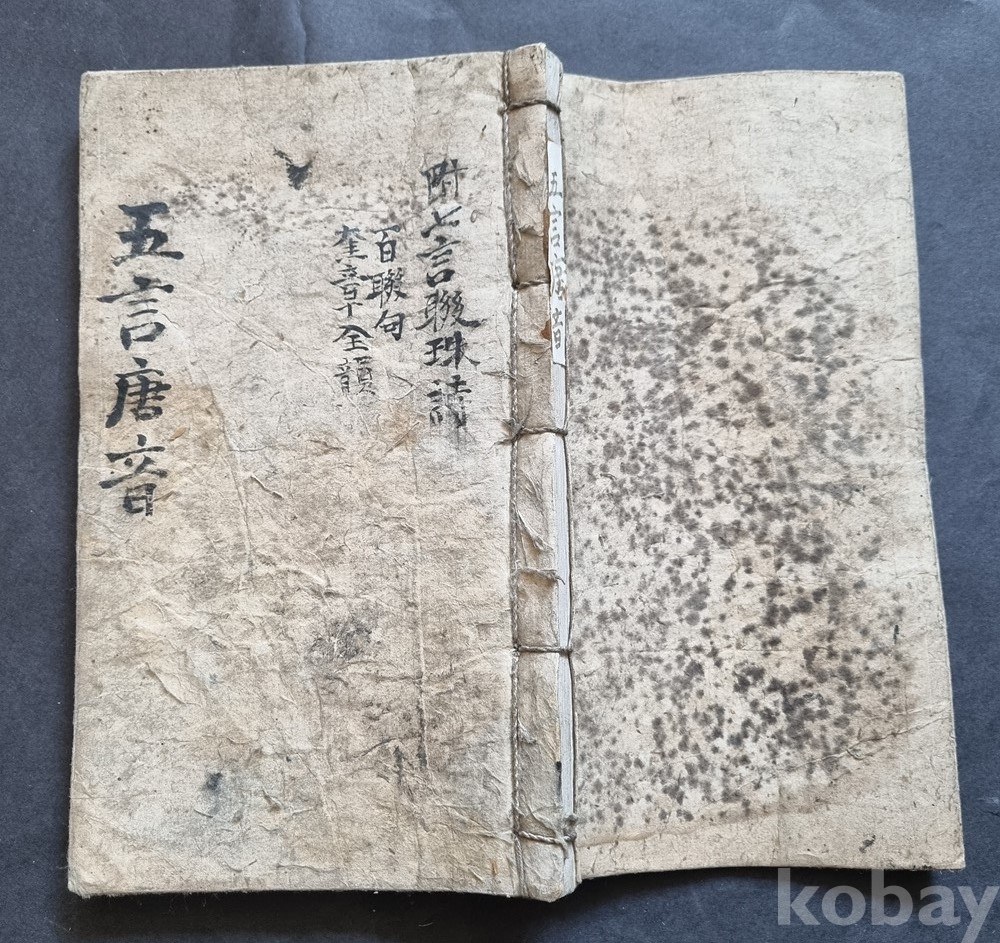 五言唐音
附七言聯珠詩
百聯句
奎章全韻
五言唐音
kobay